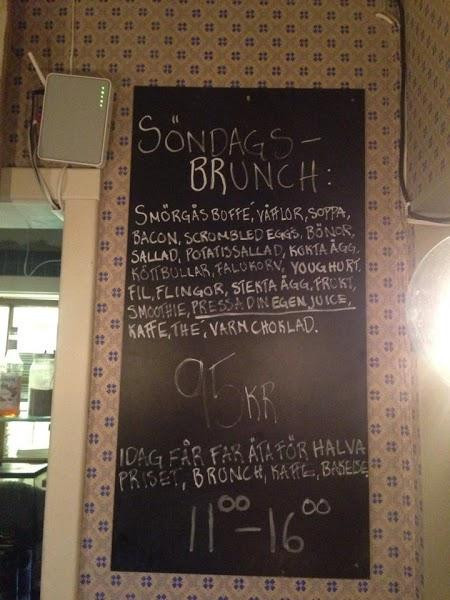 SÖNDAGS-
BRUNCH:
SMÖRGÅSBUFFÉ, VÅFFLOR, SOPPA,
BACON, SCRUMBLED EGGS, BÖNOR,
SALLAD, POTATISSALLAD, KOKTA ÄGG,
KÖTTBULLAR, FALUKORV, YOUGHURT,
FIL, FLINGOR, STEKTA ÄGG, FRUKT,
SMOOTHIE, PRESSA DIN EGEN JUICE,
KAFFE, THÉ, VARM CHOKLAD.
95 KR
IDAG FÅR FAR ÄTA FÖR HALVA
PRISET, BRUNCH, KAFFE, BAKELSE
11⁰⁰-16⁰⁰